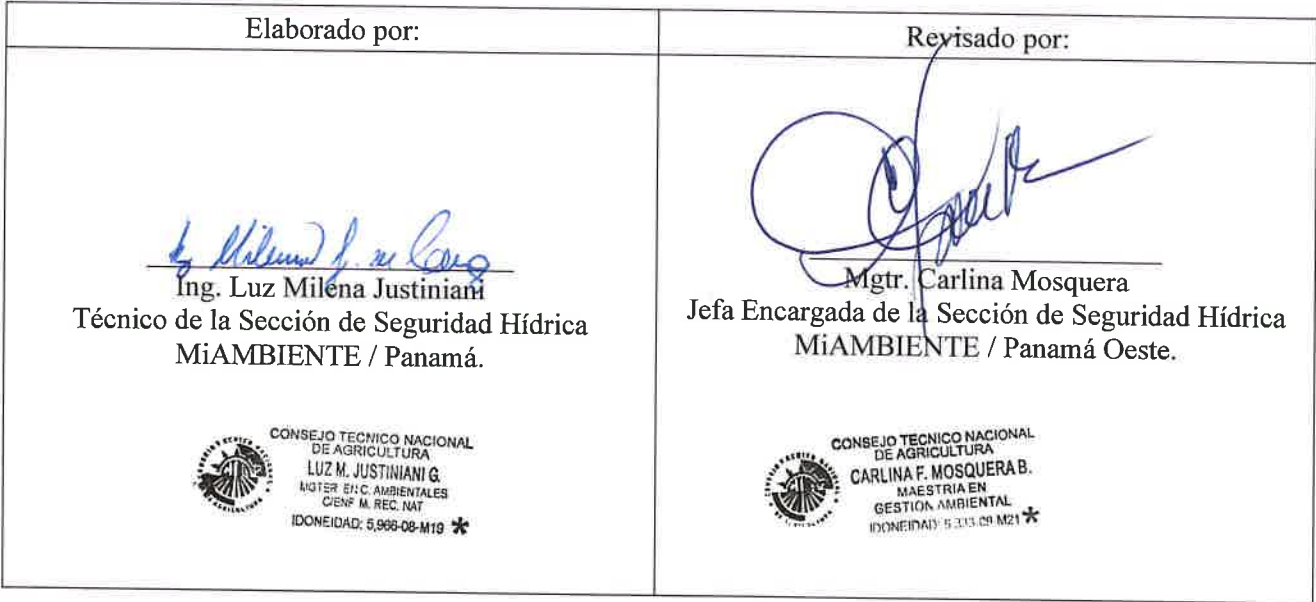 Elaborado por:
Ing. Luz Milena Justiniani
Técnico de la Sección de Seguridad Hídrica
MiAMBIENTE / Panamá.
CONSEJO TECNICO NACIONAL
DE AGRICULTURA
LUZ M. JUSTINIANI G.
MGTER EN C. AMBIENTALES
C/ENF M. REC. NAT
IDONEIDAD: 5,966-08-M19 *
Revisado por:
Mgtr. Carlina Mosquera
Jefa Encargada de la Sección de Seguridad Hídrica
MiAMBIENTE / Panamá Oeste.
CONSEJO TECNICO NACIONAL
DE AGRICULTURA
CARLINA F. MOSQUERA B.
MAESTRIA EN
GESTION AMBIENTAL
IDONEIDAD: 5,333-09 M21 *